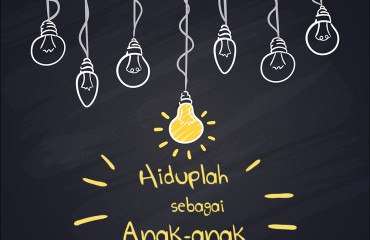 Hiduplah
sebagai
Anak-anak